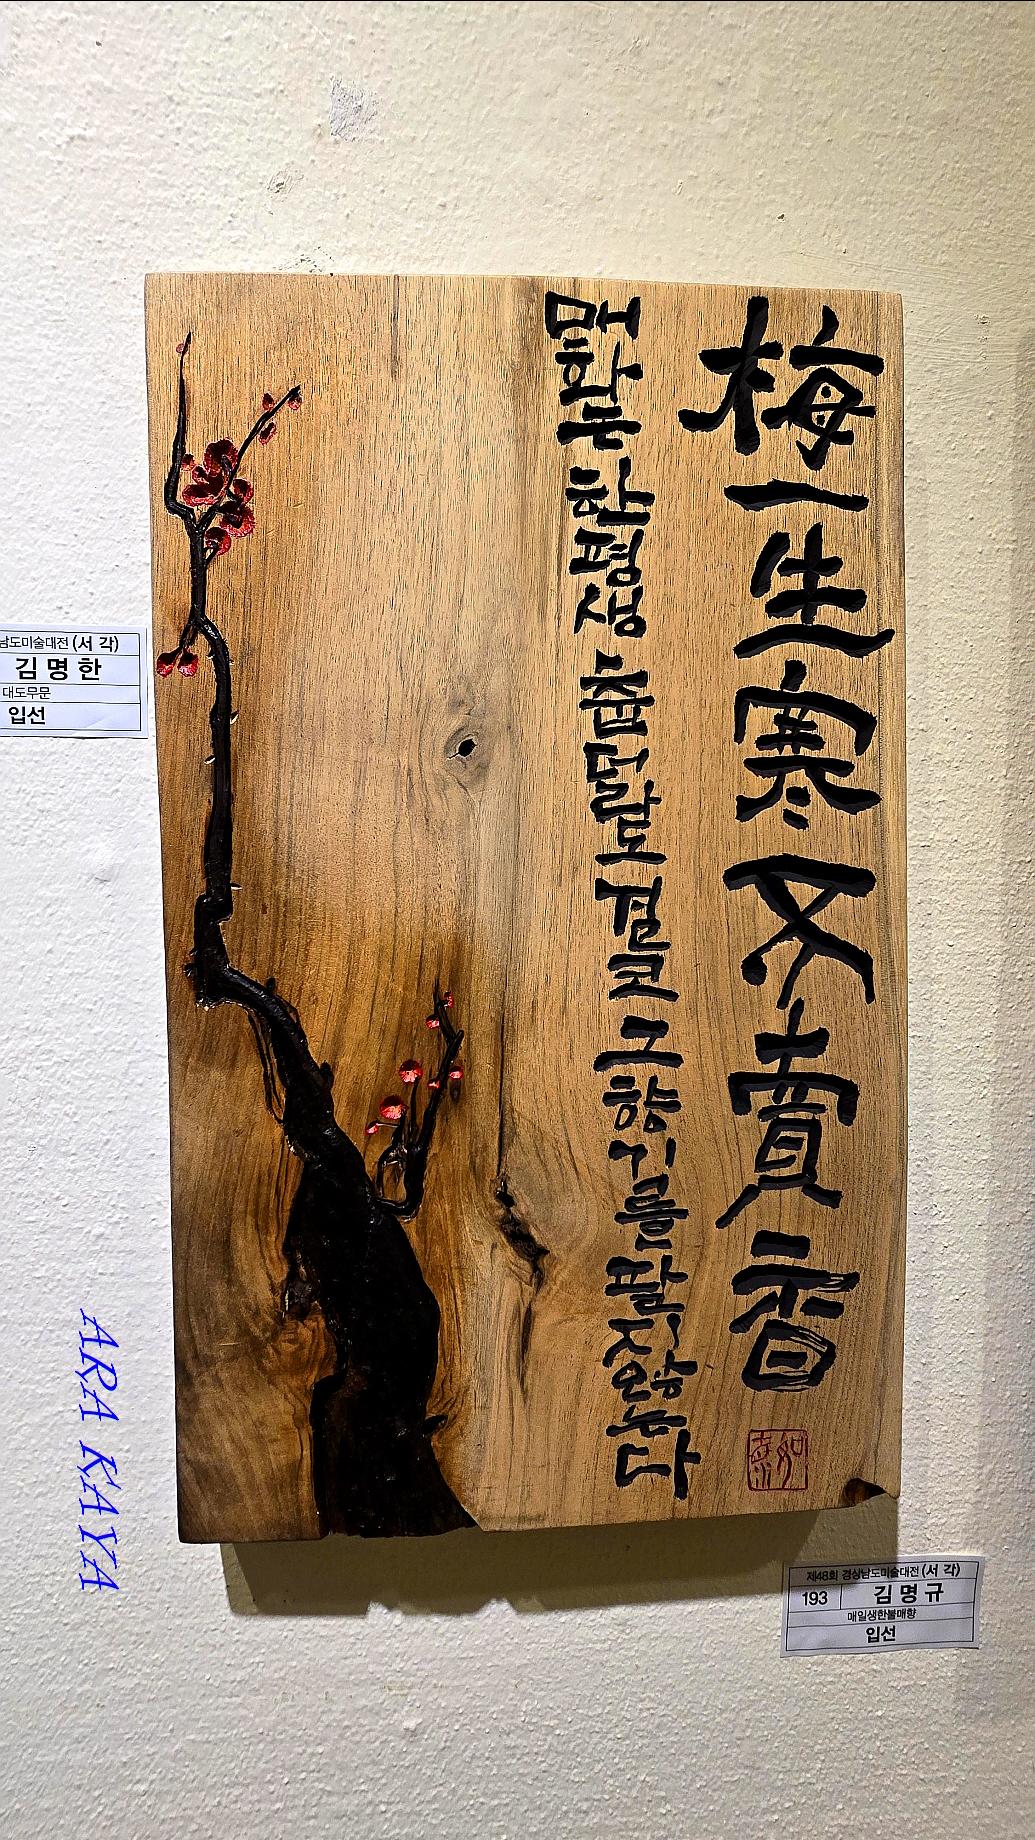 梅一生寒不賣香
매화는 한평생 춥더라도 결코 그 향기를 팔지 않는다
남도미술대전 (서 각)
김 명 한
대도무문
입선
ARA KAYA
제48회 경상남도미술대전 (서 각)
193 김 명 규
매일생한불매향
입선